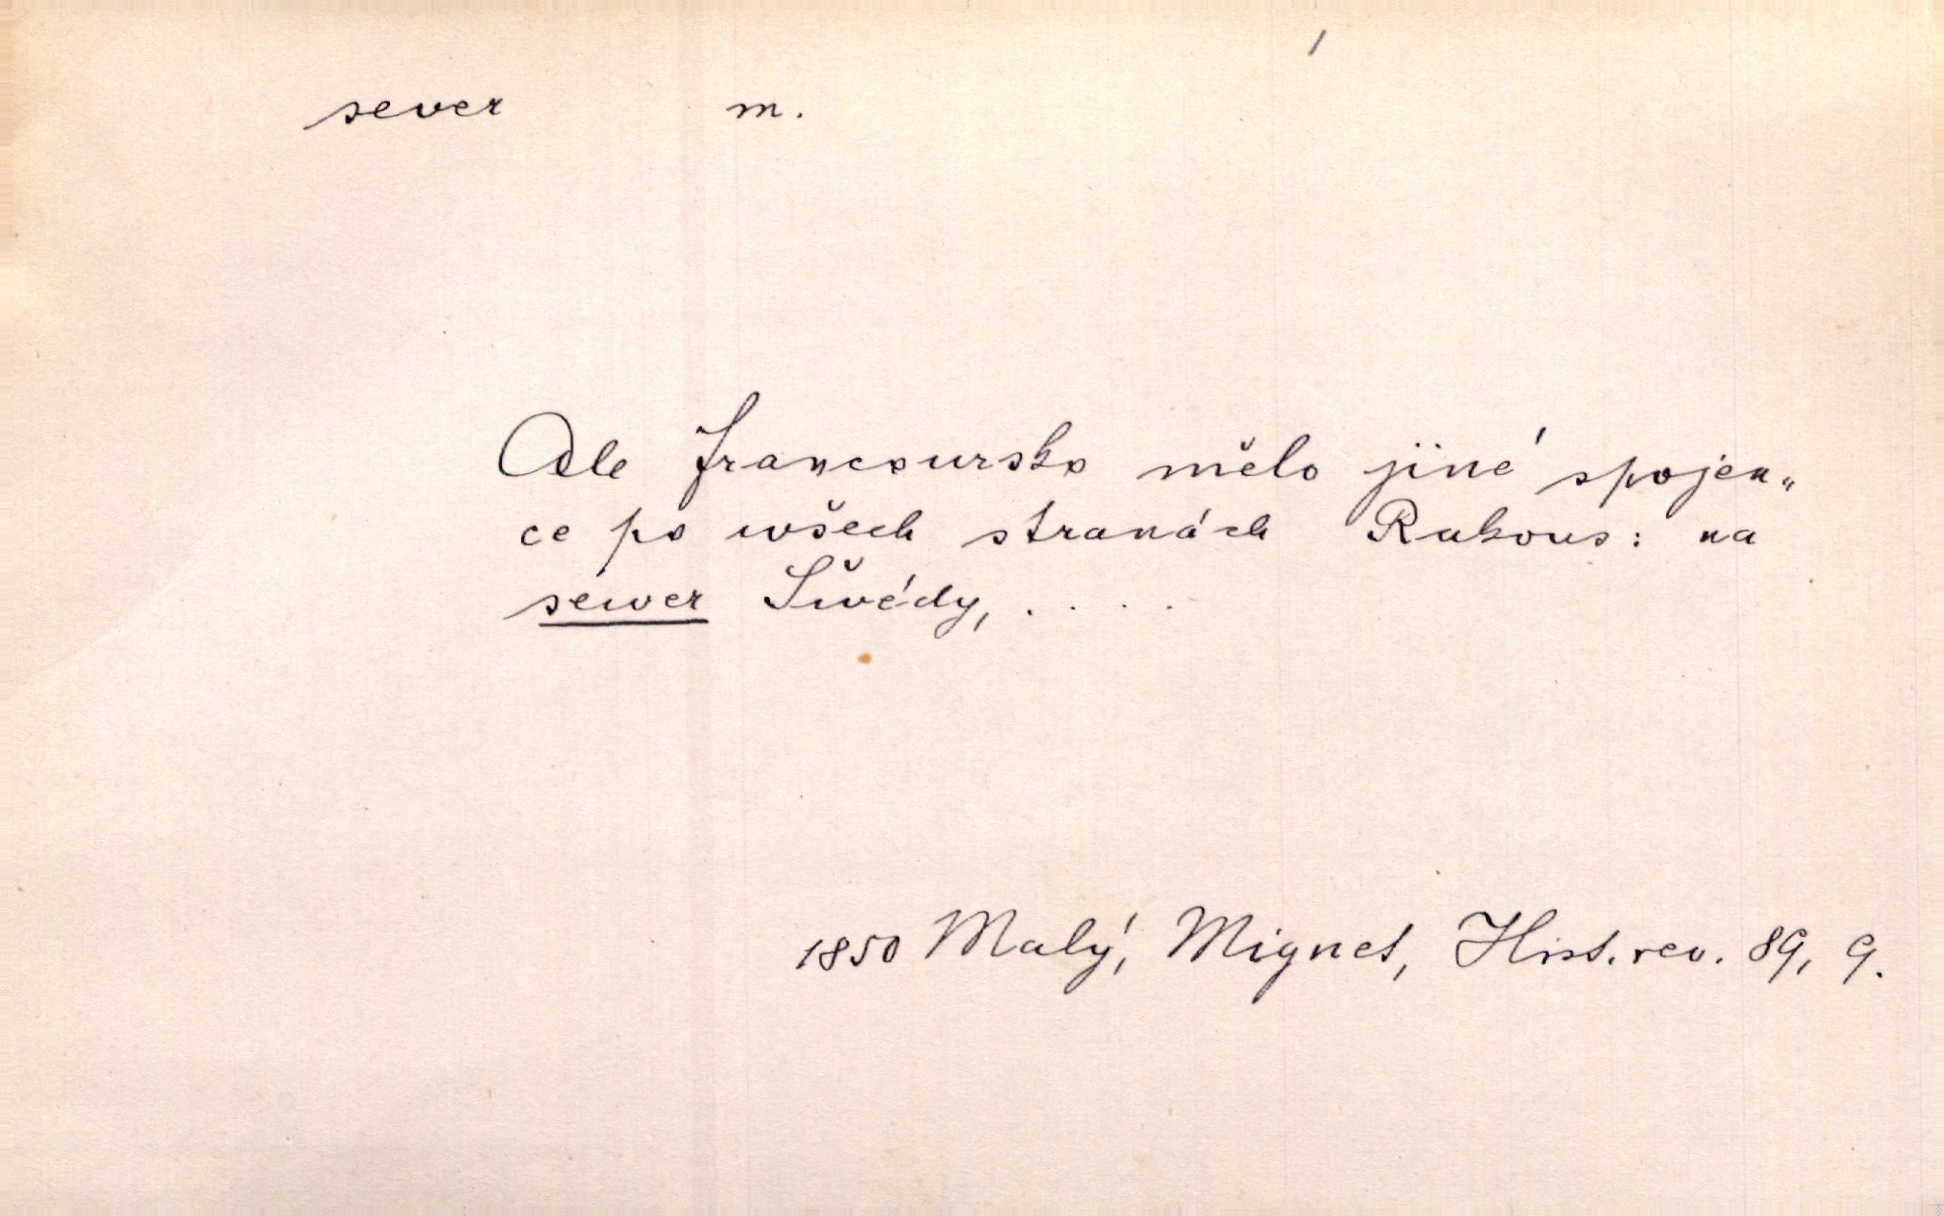 /
sever m.
Ale Francoursko mělo jiné spojen„
ce po wšech stranách Rakous: na
sewer Šwédy, . . . .
1850 Malý, Mignet, Hist. rev. 89, 9.